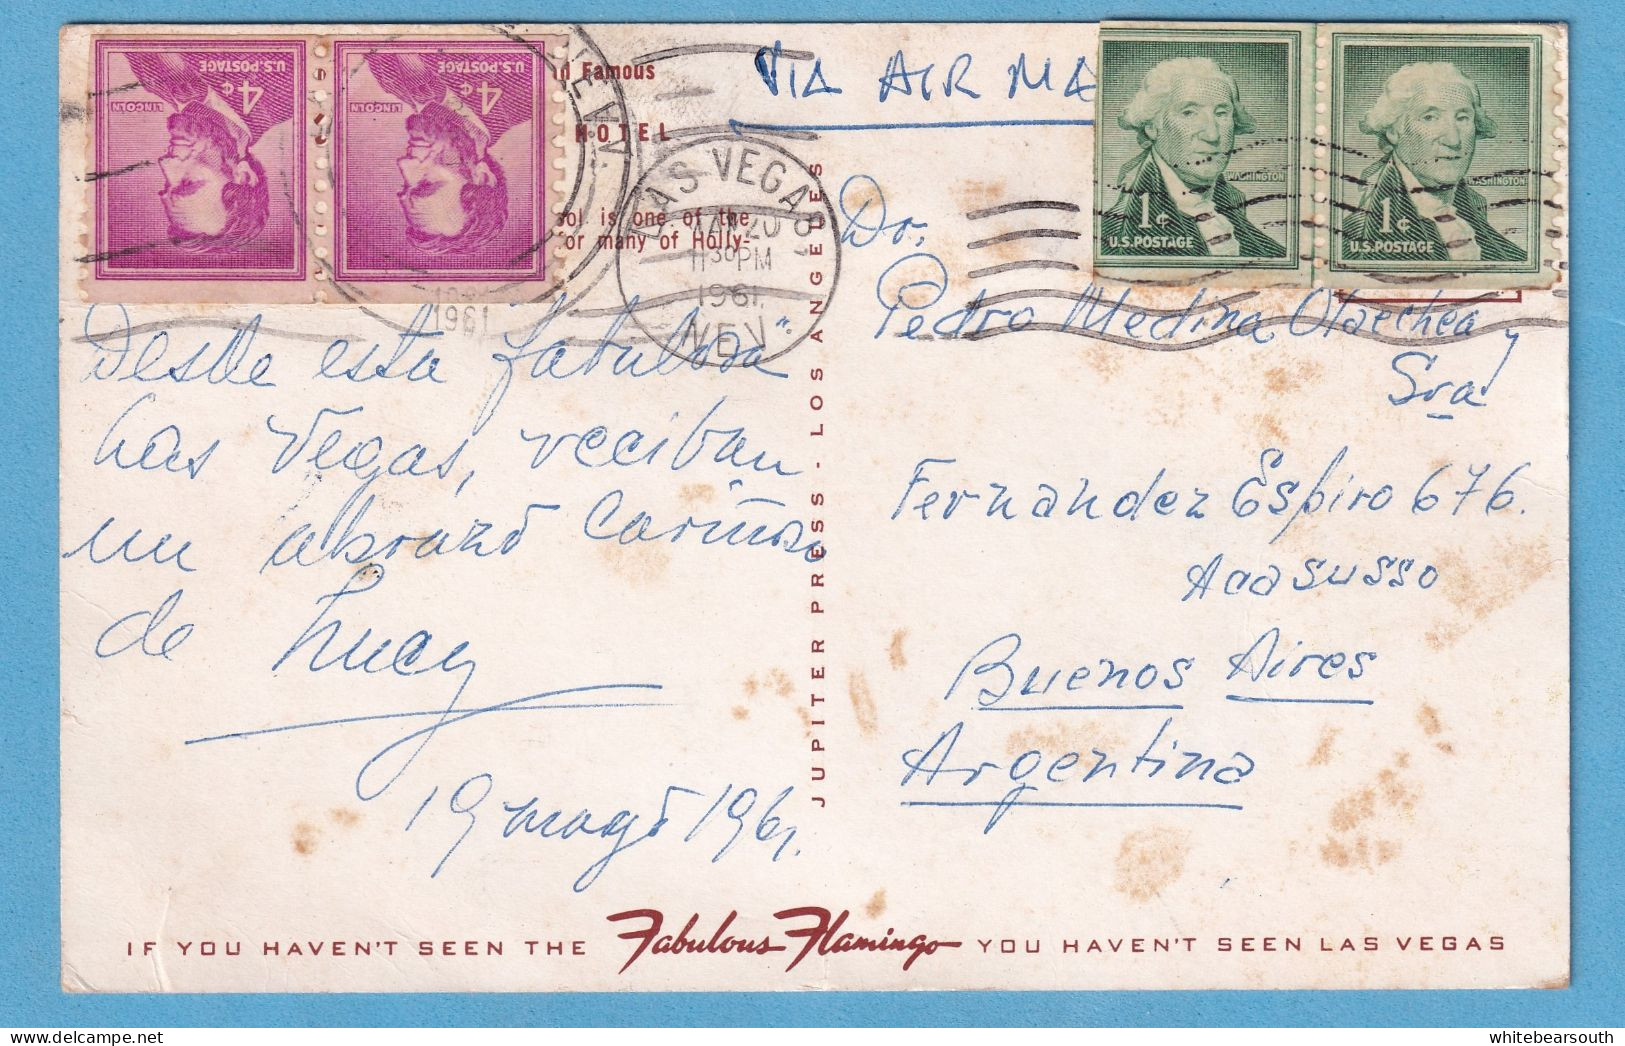 U.S. POSTAGE
4¢
LINCOLN
U.S. POSTAGE
4¢
LINCOLN
nd Famous
HOTEL
ool is one of the
or many of Holly-
1961
LAS VEGAS,
11 30 PM
1961
NEV.
VIA AIR MA
WASHINGTON
1¢
U.S. POSTAGE
WASHINGTON
1¢
U.S. POSTAGE
Desde esta fabulosa
Las Vegas, reciban
un abrazo Cariñoso
de Lucy
19 mayo 1961.
JUPITER PRESS - LOS ANGELES
Dr.
Pedro Medina Olaechea y
Sra
Fernandez Espiro 676.
Acasusso
Buenos Aires
Argentina
IF YOU HAVEN'T SEEN THE Fabulous Flamingo YOU HAVEN'T SEEN LAS VEGAS
whitebearsouth
delcampe.net